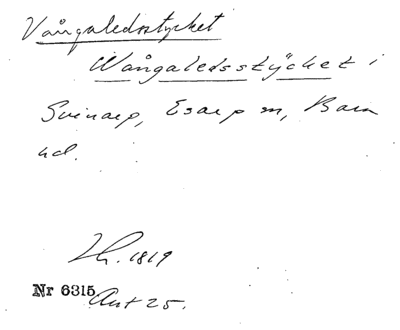 Vångaledsstycket
Wångaledsstÿcket i
Svinarp, Esarp sn, Bara
hd.
Lh. 1819
Nr 6315
Akt 25.